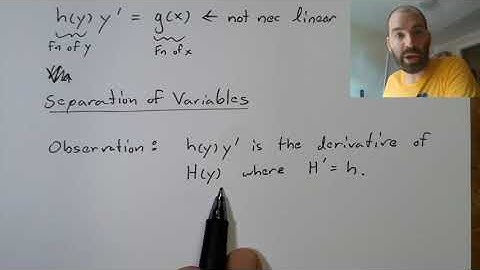 h(y) y' = g(x) ← not nec linear
Fn of y Fn of x
Separation of Variables
Observation: h(y) y' is the derivative of
H(y) where H' = h.